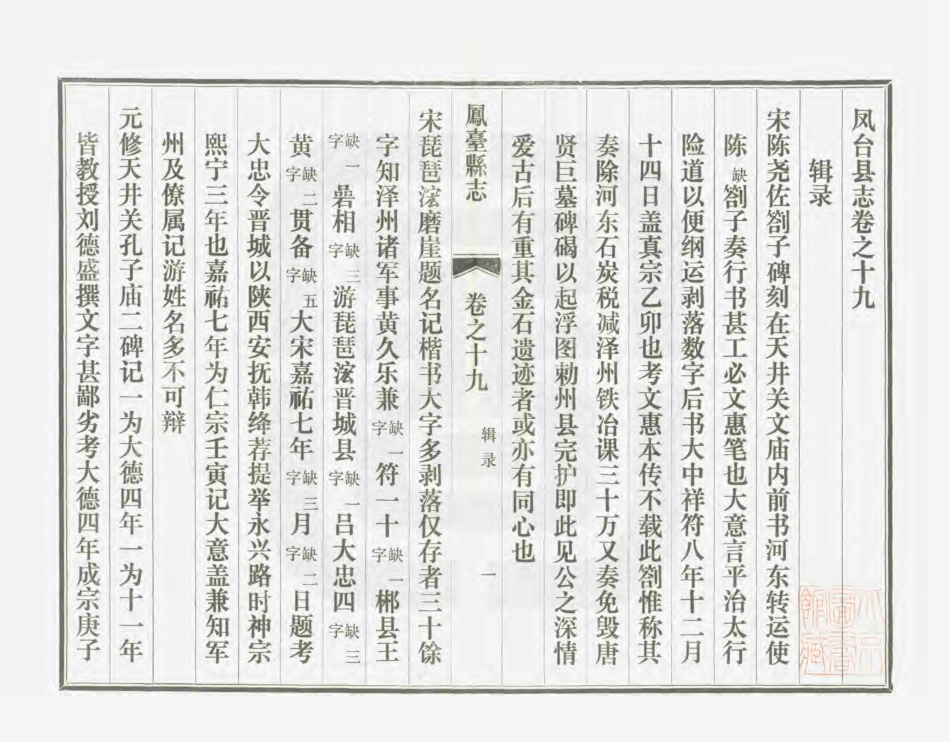 凤台县志卷之十九
辑录
宋陈尧佐劄子碑刻在天井关文庙内前书河东转运使
陈缺劄子奏行书甚工必文惠笔也大意言平治太行
险道以便纲运剥落数字后书大中祥符八年十二月
十四日盖真宗乙卯也考文惠本传不载此劄惟称其
奏除河东石炭税减泽州铁冶课三十万又奏免毁唐
贤巨墓碑碣以起浮图勅州县完护即此见公之深情
爱古后有重其金石遗迹者或亦有同心也
鳳臺縣志 卷之十九 辑录 一
宋琵琶滱磨崖题名记楷书大字多剥落仅存者三十馀
字知泽州诸军事黄久乐兼缺一字符一十缺一字郴县王
缺一字曑相缺三字游琵琶滱晋城县缺一字吕大忠四缺三字
黄缺二字贯备缺五字大宋嘉祐七年缺三字月缺二字日题考
大忠令晋城以陕西安抚韩绛荐提举永兴路时神宗
熙宁三年也嘉祐七年为仁宗壬寅记大意盖兼知军
州及僚属记游姓名多不可辩
元修天井关孔子庙二碑记一为大德四年一为十一年
皆教授刘德盛撰文字甚鄙劣考大德四年成宗庚子